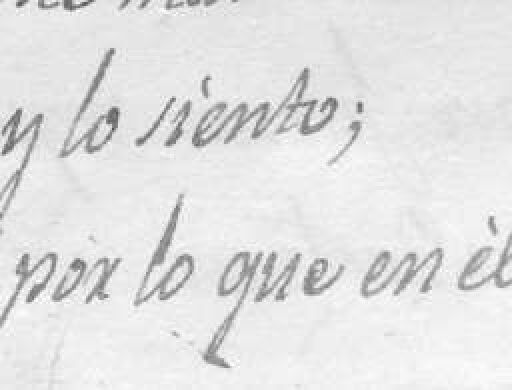 y lo siento;
por lo que en èl